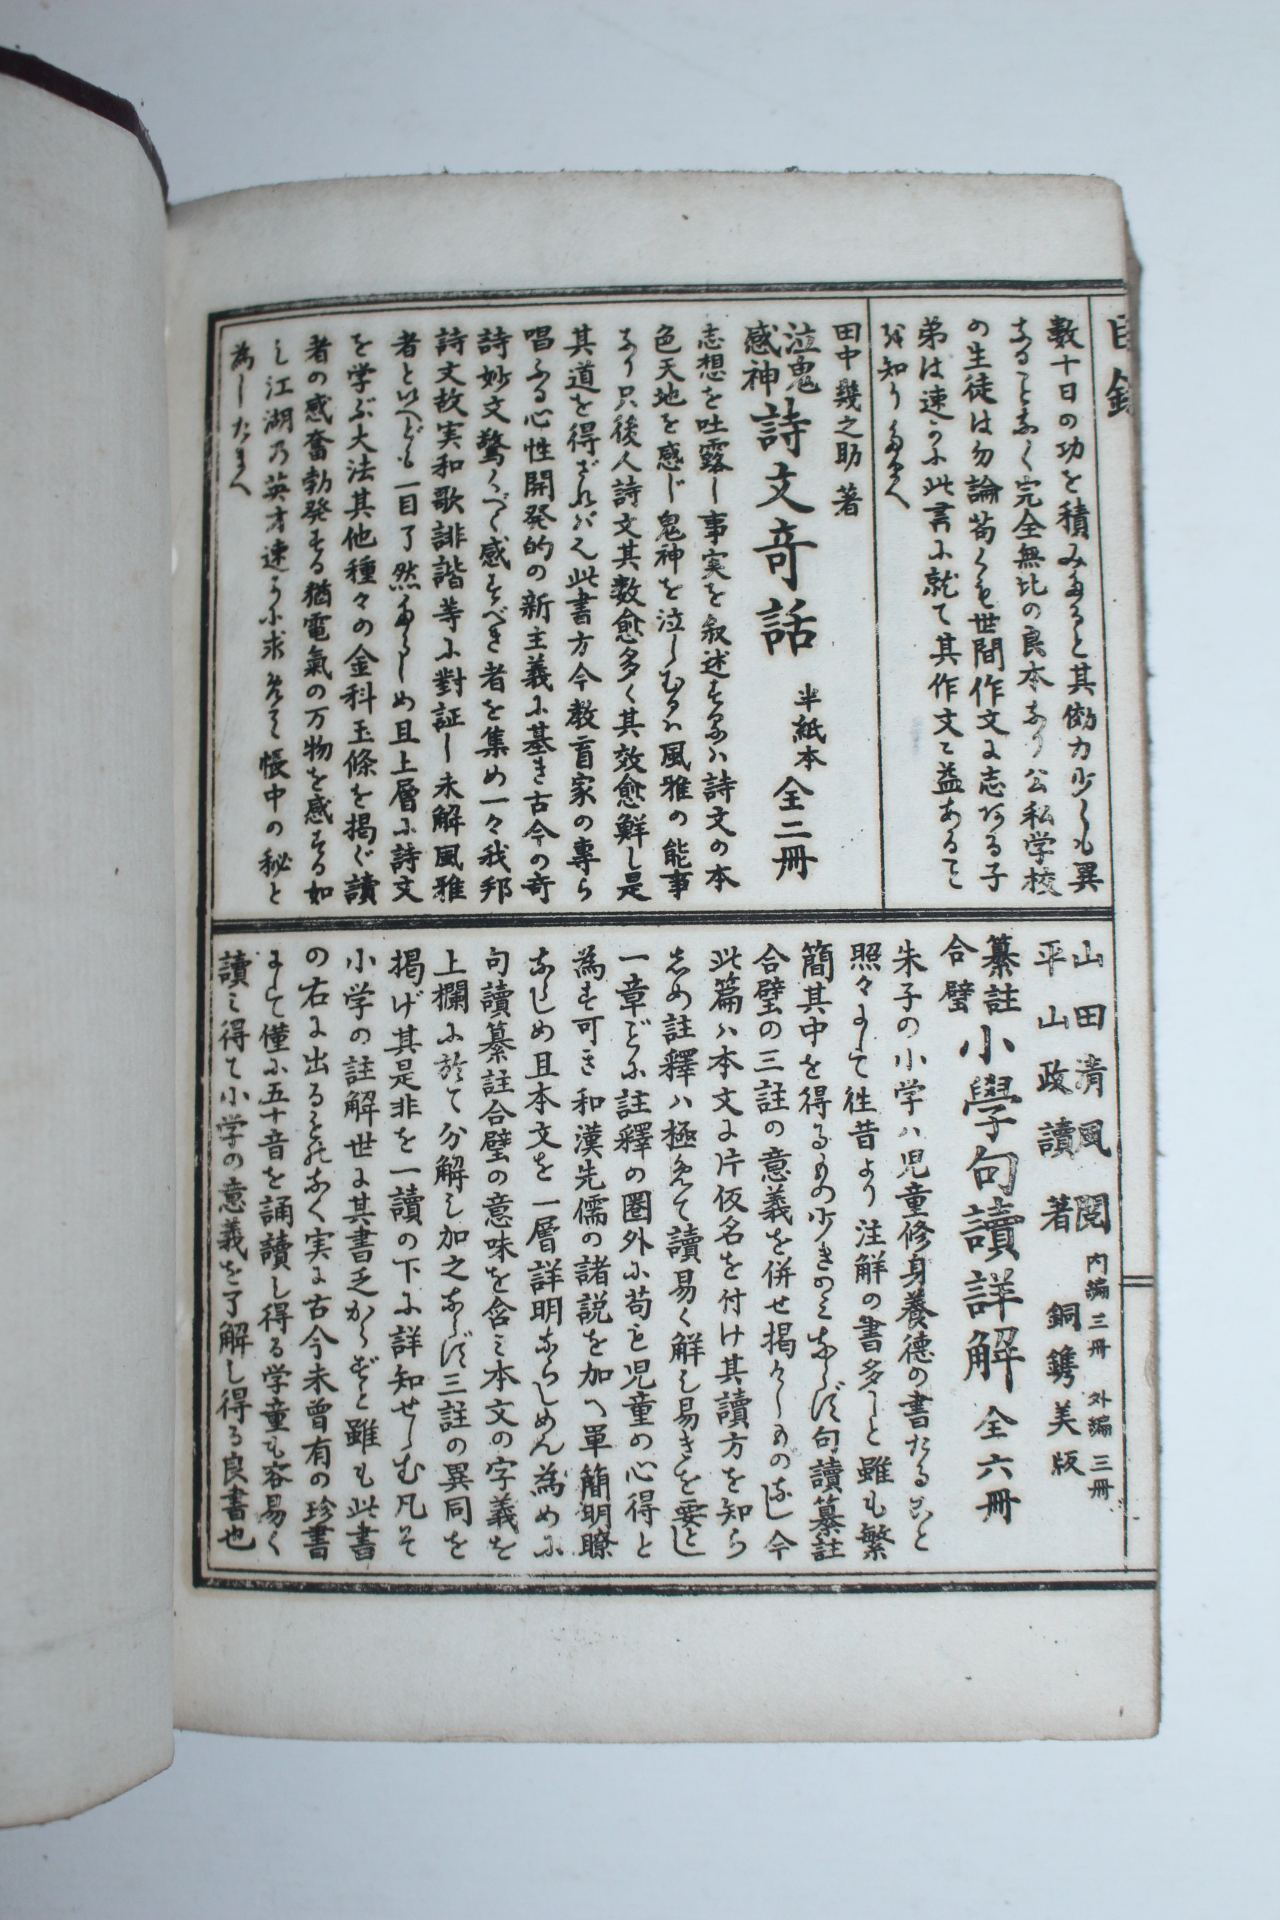 目録
數十日の功を積みたると其働力少しも異
なることなく完全無比の良本なり公私学校
の生徒は勿論苟くも世間作文に志ある子
弟は速かに此書に就て其作文に益あること
を知りたまへ
田中幾之助著
泣鬼感神 詩文奇話 半紙本 全二冊
志想を吐露し事実を叙述するハ詩文の本
色天地を感じ鬼神を泣しむるハ風雅の能事
なり只後人詩文其数愈多く其效愈鮮し是
其道を得ざれバなり此書方今教育家の専ら
唱ふる心性開発的の新主義に基き古今の奇
詩妙文驚くべく感ずべき者を集め一々我邦
詩文故実和歌誹諧等に對証し未解風雅
者といへども一目了然たらしめ且上層に詩文
を学ぶ大法其他種々の金科玉條を掲ぐ讀
者の感奮勃発する猶電氣の万物を感ずる如
し江湖乃英才速かに求
帳中の秘と
為したまへ
山田清風閲
平山政讀著 銅鐫美版 内編三冊 外編三冊
纂註合璧 小學句讀詳解 全六冊
朱子の小学ハ児童修身養徳の書たること
照々として往昔より注解の書多しと雖も繁
簡其中を得るもの少きのミならず句讀纂註
合璧の三註の意義を併せ掲けしもの気し今
此篇ハ本文に片仮名を付け其讀方を知ら
しめ註釋ハ極めて讀易く解し易きを要とし
一章どに註釋の圏外に苟も児童の心得と
為す可き和漢先儒の諸説を加へ單簡明瞭
ならしめ且本文を一層詳明ならしめん為めに
句讀纂註合璧の意味を含ミ本文の字義を
上欄に於て分解し加之ならず三註の異同を
掲げ其是非を一讀の下に詳知せしむ凡そ
小学の註解世に其書乏からずと雖も此書
の右に出るものなく実に古今未曾有の珍書
にして僅に五十音を誦讀し得る学童も容易く
讀ミ得て小学の意義を了解し得る良書也